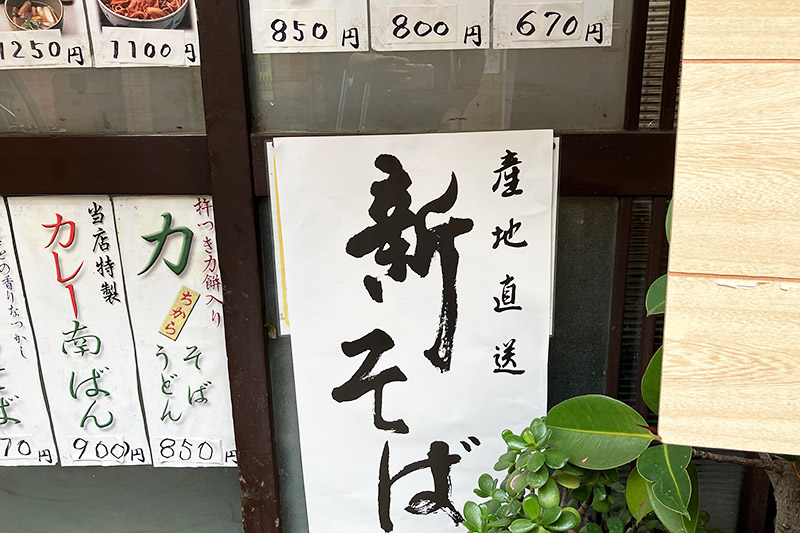 1250円
1100円
850円
800円
670円
産地直送
新そば
杵つき力餅入り
力
ちから
そば
うどん
850円
当店特製
カレー
南ばん
900円
の香りなつかし
70円